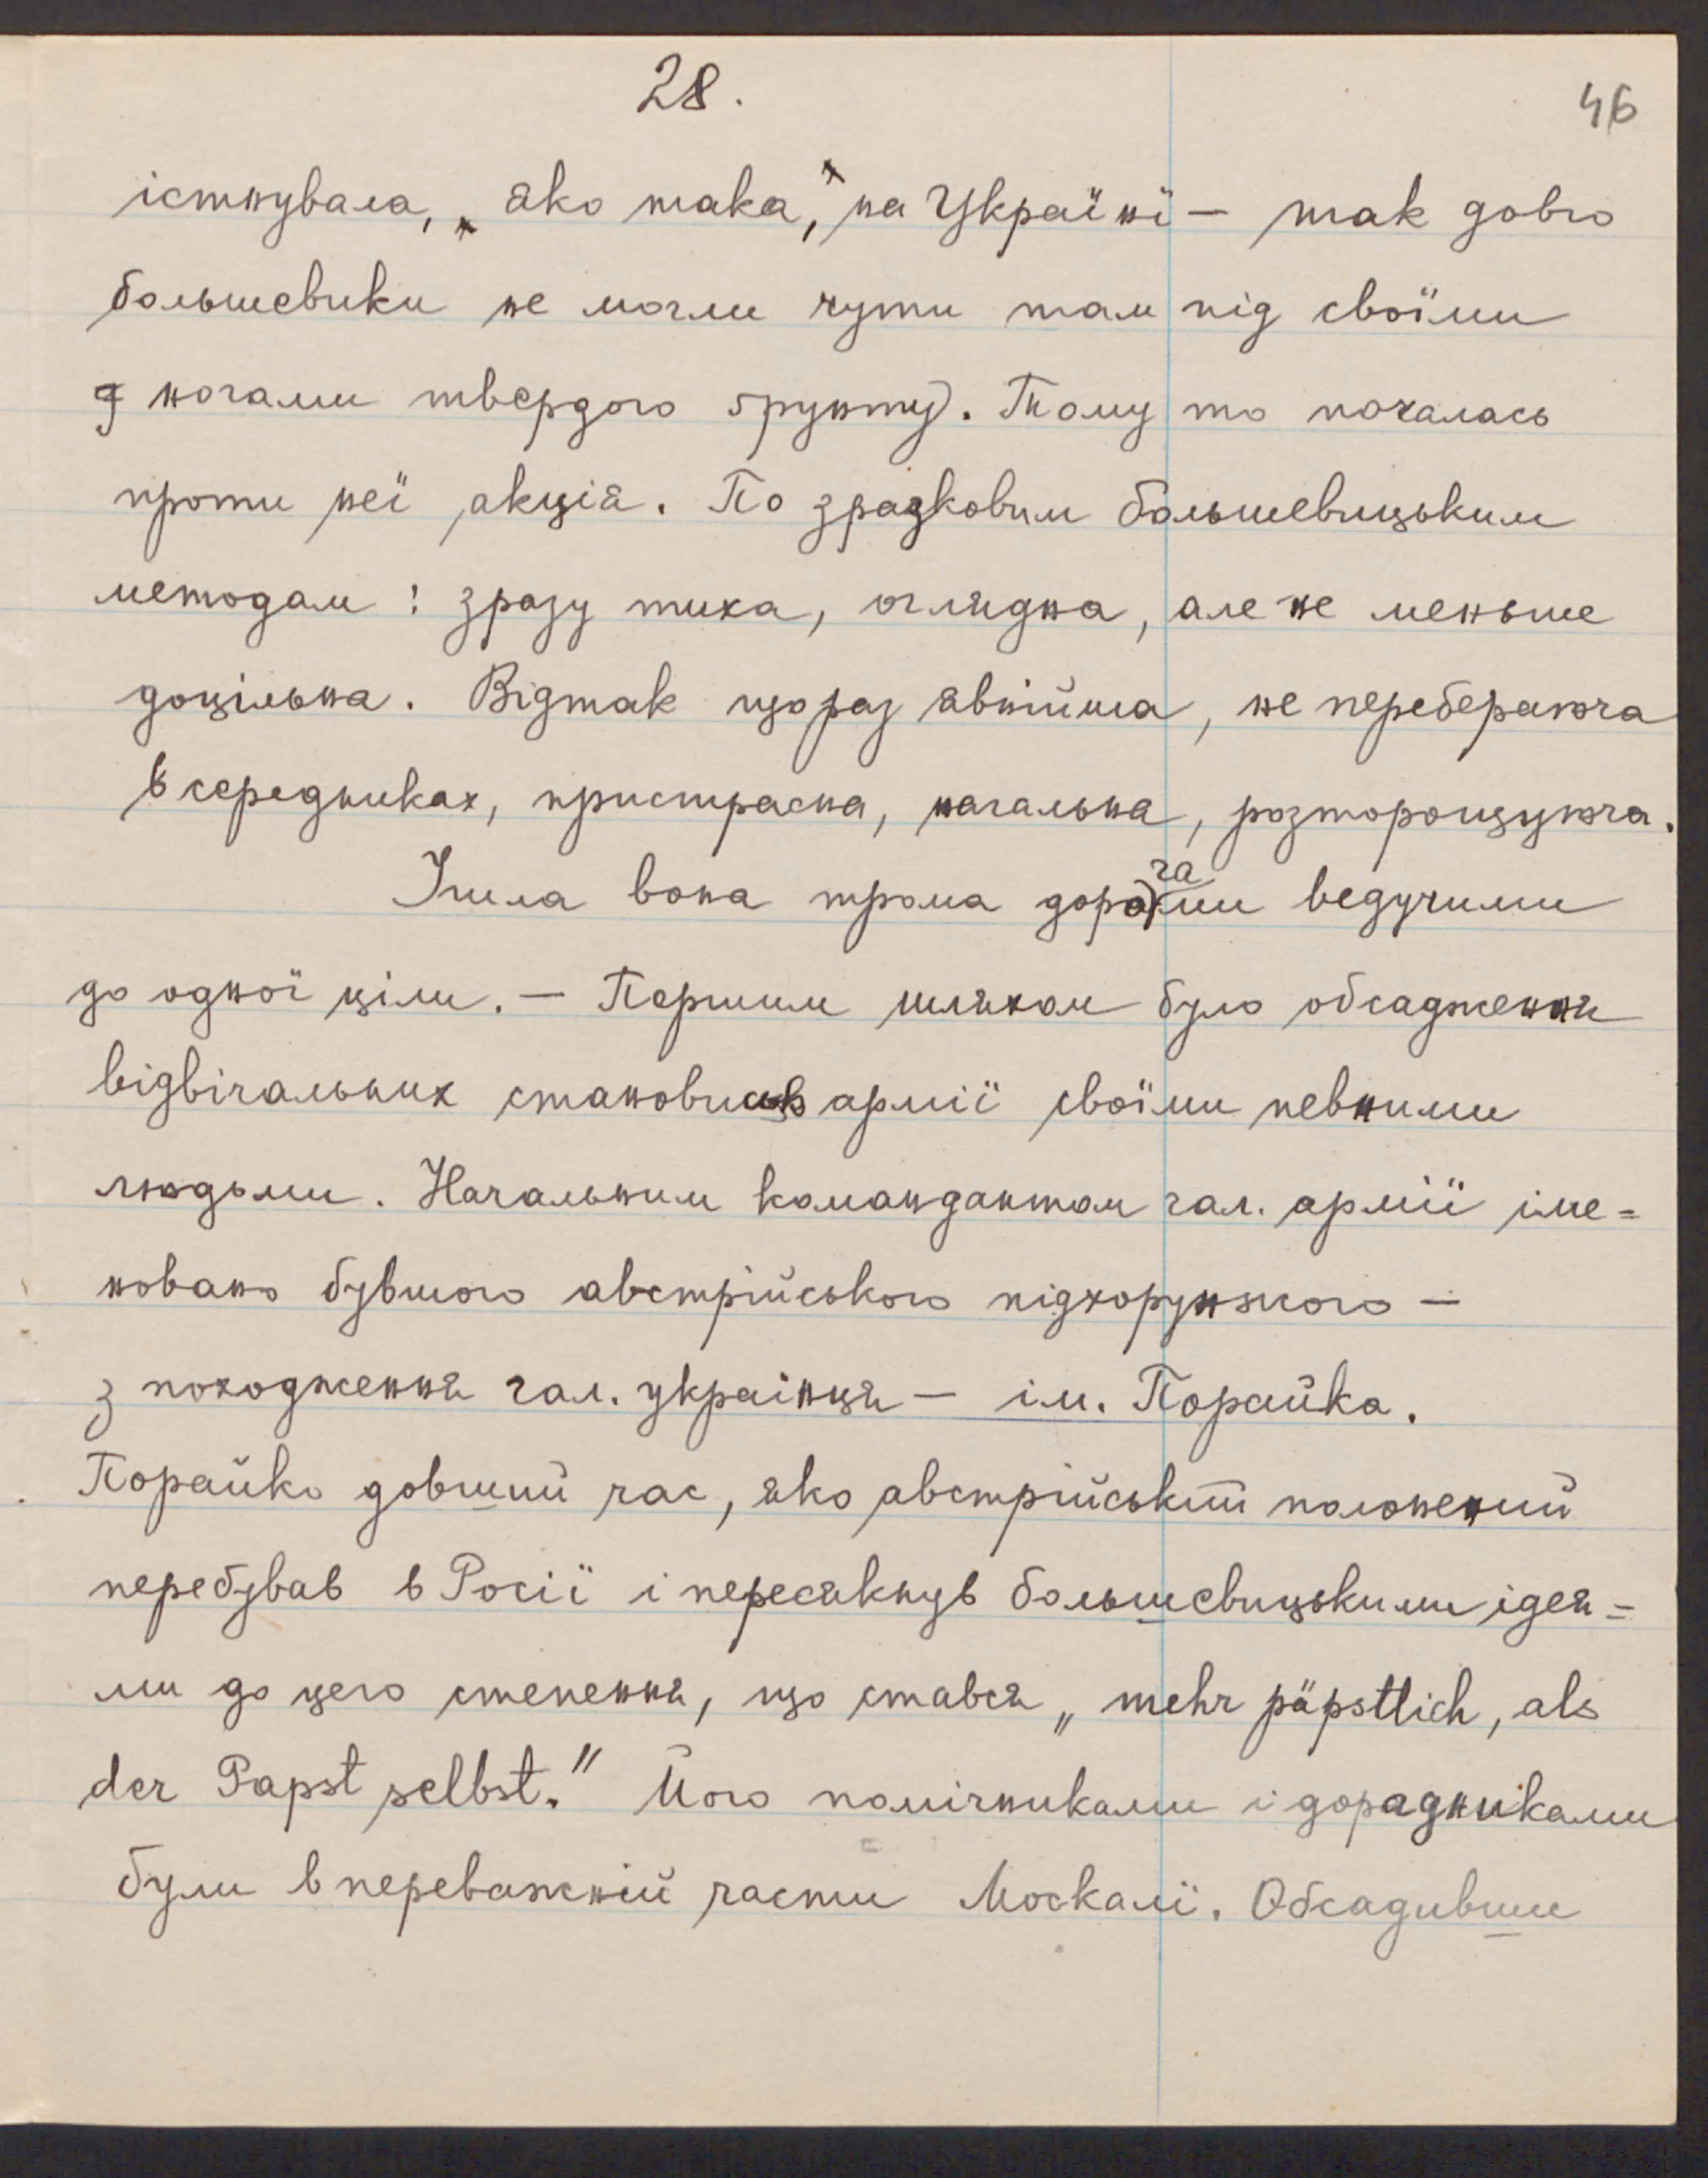 28.
46
істнувала, „яко така,“ на Україні — так довго
большевики не могли чути там під своїми
ногами твердого ґрунту. Тому то почалась
проти неї акція. По зразковим большевицьким
методам: зразу тиха, оглядна, але не меньше
доцільна. Відтак що раз явнійша, не переберанюча
в середниках, пристрасна, нагальна, розторощуюча.
Ішла вона трома дорогами ведучими
до одної ціли. — Першим шляхом було обсадження
відвічальних становищ армії своїми певними
людьми. Начальним командантом гал. армії іме=
новано бувшого австрійського підхорунжого —
з походження гал. українця — ім. Порайка.
Порайко довший час, яко австрійський положений
перебував в Росії і пересякнув большевицькими ідея=
ми до цего степення, що стався „mehr päpstlich, als
der Papst selbst.“ Його помічниками і дорадниками
були в переважній части Москалї. Обсадивши